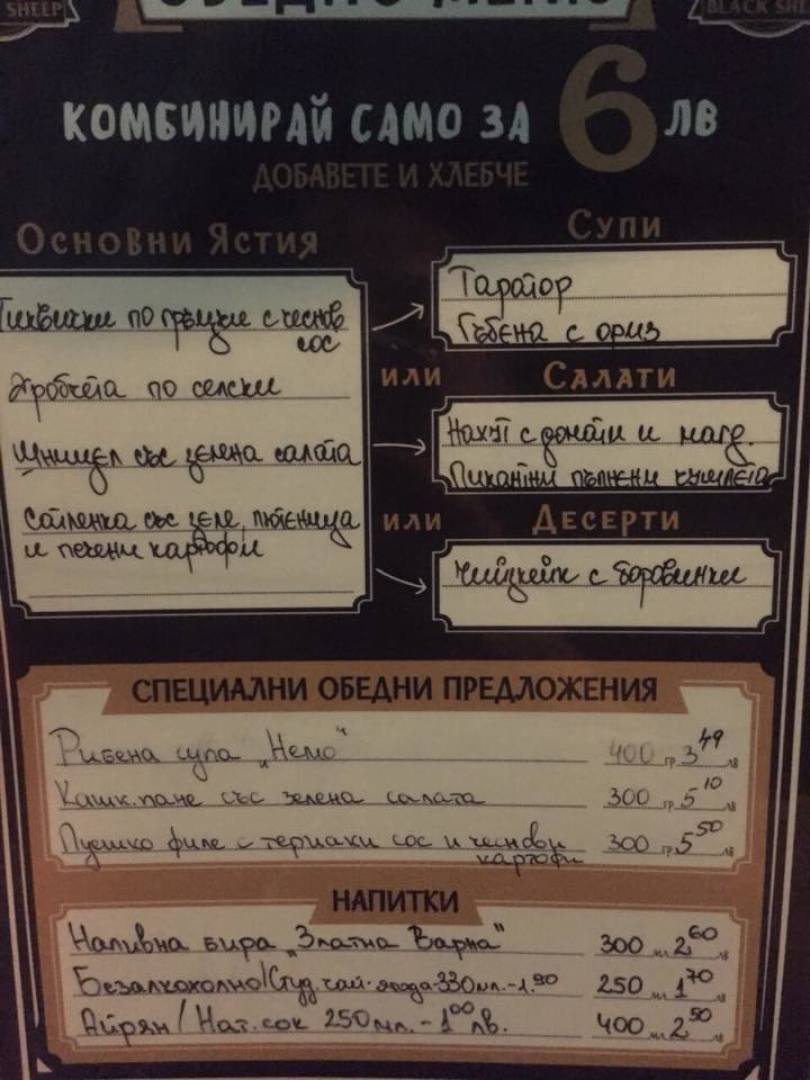 SHEEP
BLACK SHE
ОБЕДНО МЕНЮ
КОМБИНИРАЙ САМО ЗА 6 ЛВ
ДОБАВЕТЕ И ХЛЕБЧЕ
ОСНОВНИ ЯСТИЯ
Тиквички по гръцки с чеснов
сос
Дробчета по селски
Шницел със зелена салата
със зеле, лютеница
и печени картофи
СУПИ
Таратор
Гъбена с ориз
ИЛИ
САЛАТИ
Нахут с домати и магд.
Пикантни пълнени чушлета
ИЛИ
ДЕСЕРТИ
Чийзкейк с боровинки
СПЕЦИАЛНИ ОБЕДНИ ПРЕДЛОЖЕНИЯ
Рибена супа „Немо" 400 гр. 3 49 лв
Кашк. пане със зелена салата 300 гр. 5 10 лв
Пуешко филе с териаки сос и чеснови 300 гр. 5 50 лв
картофи
НАПИТКИ
Наливна бира „Златна Варна" 300 мл 2 60 лв
Безалкохолно/Студ. чай - ягода - 330мл. - 1.90 250 мл 1 70 лв
Айрян / Нат. сок 250мл. - 1 00 лв. 400 мл 2 50 лв